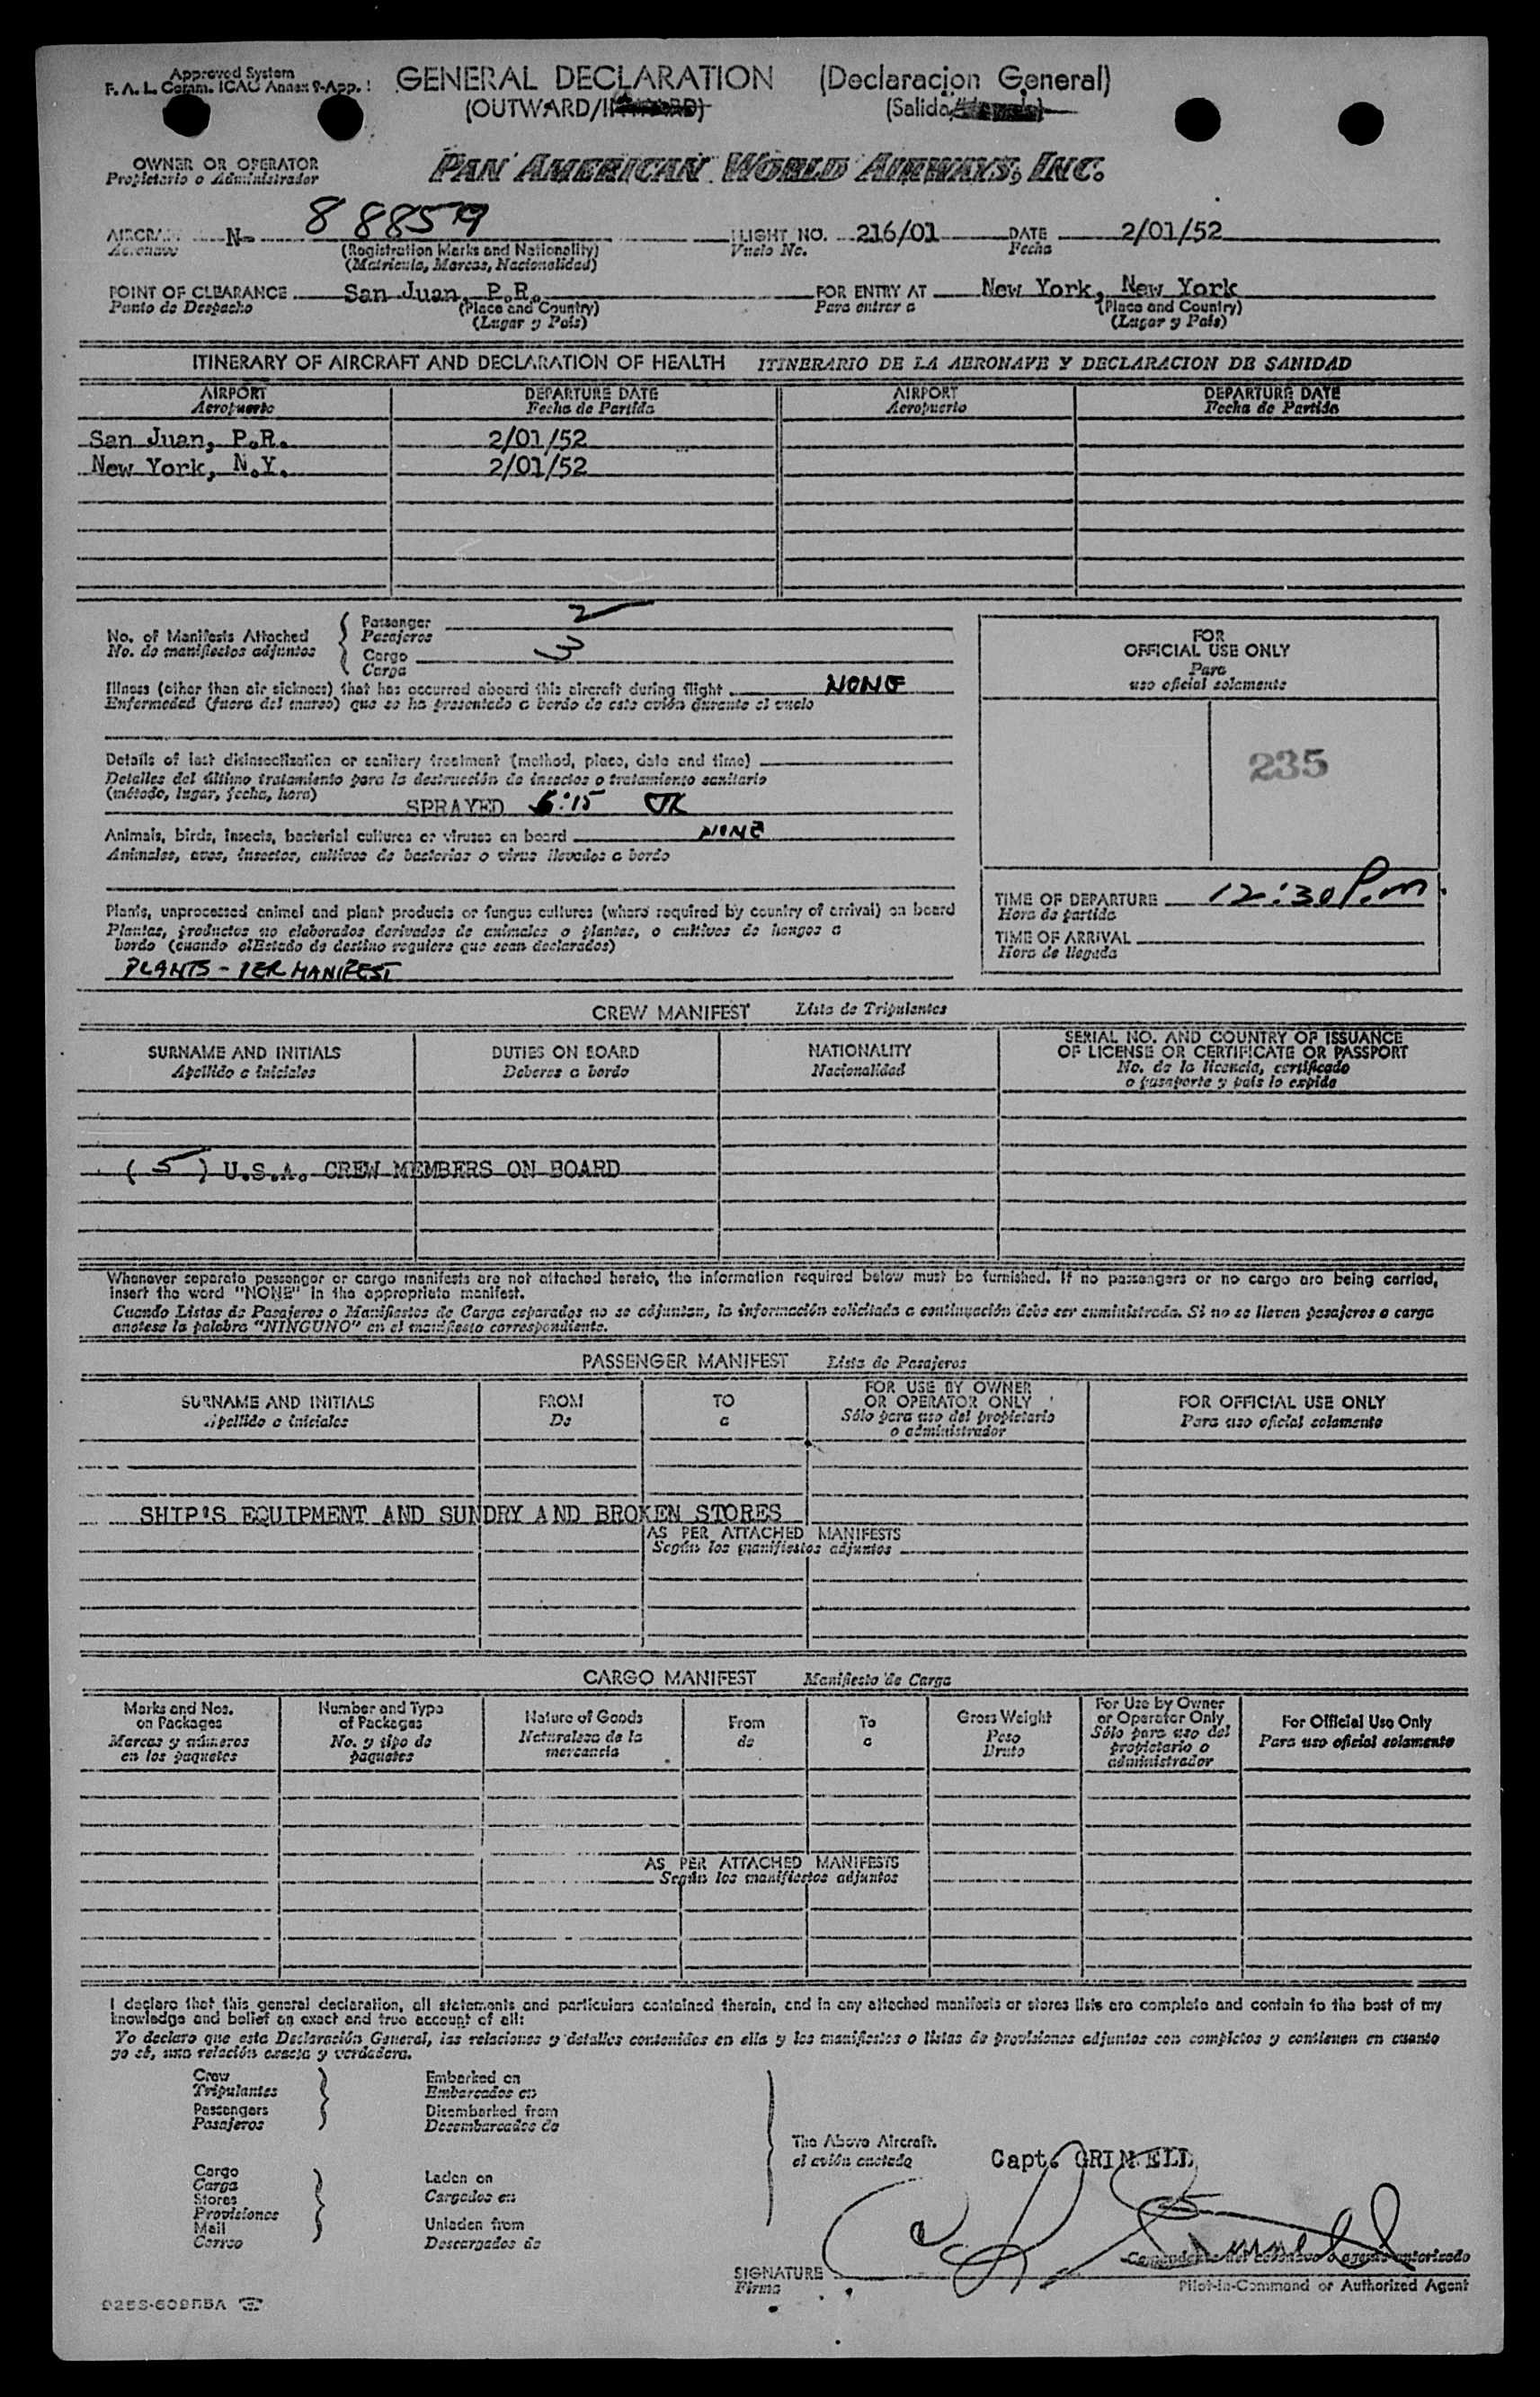 Approved System
F. A. L. Comm. ICAO Annex 9-App. 1
GENERAL DECLARATION (Declaracion General)
(OUTWARD/INWARD) (Salida/
OWNER OR OPERATOR
Propietario o Administrador
PAN AMERICAN WORLD AIRWAYS, INC.
AIRCRAFT N- 88859 FLIGHT NO. 216/01 DATE 2/01/52
Aeronave (Registration Marks and Nationality) Vuelo No. Fecha
(Matricula, Marcas, Nacionalidad)
POINT OF CLEARANCE San Juan, P.R. FOR ENTRY AT New York, New York
Punto de Despacho (Place and Country) Para entrar a (Place and Country)
(Lugar y País) (Lugar y País)
ITINERARY OF AIRCRAFT AND DECLARATION OF HEALTH ITINERARIO DE LA AERONAVE Y DECLARACION DE SANIDAD
AIRPORT DEPARTURE DATE AIRPORT DEPARTURE DATE
Aeropuerto Fecha de Partida Aeropuerto Fecha de Partida
San Juan, P.R. 2/01/52
New York, N.Y. 2/01/52
No. of Manifests Attached Passenger 2
No. de manifiestos adjuntos Pasajeros
Cargo 3
Carga
Illness (other than air sickness) that has occurred aboard this aircraft during flight NONE
Enfermedad (fuera del mareo) que se ha presentado a bordo de este avión durante el vuelo
Details of last disinsectization or sanitary treatment (method, place, date and time)
Detalles del último tratamiento para la destrucción de insectos o tratamiento sanitario
(método, lugar, fecha, hora)
SPRAYED 6:15
Animals, birds, insects, bacterial cultures or viruses on board NONE
Animales, aves, insectos, cultivos de bacterias o virus llevados a bordo
Plants, unprocessed animal and plant products or fungus cultures (where required by country of arrival) on board
Plantas, productos no elaborados derivados de animales o plantas, o cultivos de hongos a
bordo (cuando elEstado de destino requiere que sean declarados)
PLANTS - PER MANIFEST
FOR
OFFICIAL USE ONLY
Para
uso oficial solamente
235
TIME OF DEPARTURE 12:30 P.m.
Hora de partida
TIME OF ARRIVAL
Hora de llegada
CREW MANIFEST Lista de Tripulantes
SURNAME AND INITIALS DUTIES ON BOARD NATIONALITY SERIAL NO. AND COUNTRY OF ISSUANCE
OF LICENSE OR CERTIFICATE OR PASSPORT
Apellido e iniciales Deberes a bordo Nacionalidad No. de la licencia, certificado
o pasaporte y país lo expide
( 5 ) U.S.A. CREW MEMBERS ON BOARD
Whenever separate passenger or cargo manifests are not attached hereto, the information required below must be furnished. If no passengers or no cargo are being carried,
insert the word "NONE" in the appropriate manifest.
Cuando Listas de Pasajeros o Manifiestos de Carga separados no se adjuntan, la información solicitada a continuación debe ser suministrada. Si no se lleven pasajeros o carga
anotese la palabra "NINGUNO" en el manifiesto correspondiente.
PASSENGER MANIFEST Lista de Pasajeros
SURNAME AND INITIALS FROM TO FOR USE BY OWNER
OR OPERATOR ONLY FOR OFFICIAL USE ONLY
Apellido e iniciales De a Sólo para uso del propietario
o administrador Para uso oficial solamente
SHIP'S EQUIPMENT AND SUNDRY AND BROKEN STORES
AS PER ATTACHED MANIFESTS
Según los manifiestos adjuntos
CARGO MANIFEST Manifiesto de Carga
Marks and Nos.
on Packages
Marcas y números
en los paquetes
Number and Type
of Packages
No. y tipo de
paquetes
Nature of Goods
Naturaleza de la
mercancia
From
de
To
a
Gross Weight
Peso
Bruto
For Use by Owner
or Operator Only
Sólo para uso del
propietario o
administrador
For Official Use Only
Para uso oficial solamente
AS PER ATTACHED MANIFESTS
Según los manifiestos adjuntos
I declare that this general declaration, all statements and particulars contained therein, and in any attached manifests or stores lists are complete and contain to the best of my
knowledge and belief an exact and true account of all:
Yo declaro que esta Declaración General, las relaciones y detalles contenidos en ella y los manifiestos o listas de provisiones adjuntos son completos y contienen en cuanto
yo sé, una relación exacta y verdadera.
Crew
Tripulantes
Passengers
Pasajeros
Embarked on
Embarcados en
Disembarked from
Desembarcados de
Cargo
Carga
Stores
Provisiones
Mail
Correo
Laden on
Cargados en
Unladen from
Descargados de
The Above Aircraft.
el avión anotado
Capt. GRINNELL
SIGNATURE
Firma
Comandante del aeronave o agente autorizado
Pilot-in-Command or Authorized Agent